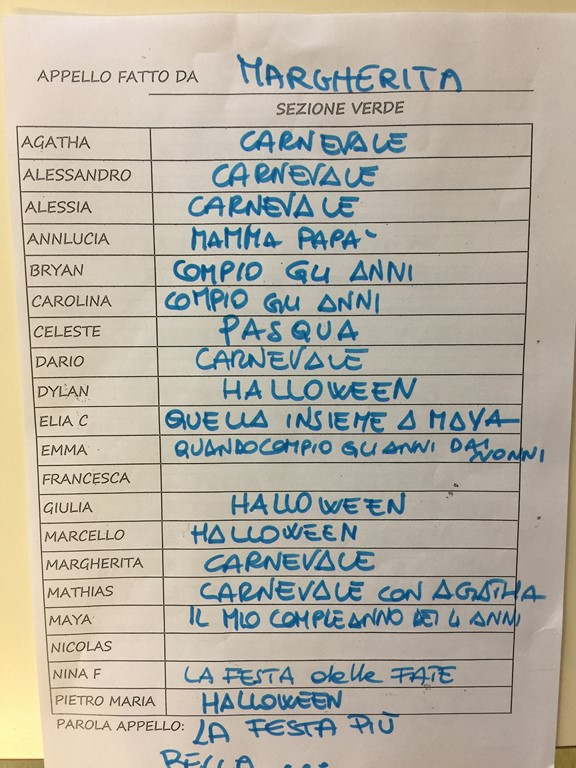 APPELLO FATTO DA MARGHERITA
SEZIONE VERDE
AGATHA CARNEVALE
ALESSANDRO CARNEVALE
ALESSIA CARNEVALE
ANNLUCIA MAMMA PAPA`
BRYAN COMPIO GLI ANNI
CAROLINA COMPIO GLI ANNI
CELESTE PASQUA
DARIO CARNEVALE
DYLAN HALLOWEEN
ELIA C QUELLA INSIEME A MAYA
EMMA QUANDO COMPIO GLI ANNI DAI NONNI
FRANCESCA
GIULIA HALLOWEEN
MARCELLO HALLOWEEN
MARGHERITA CARNEVALE
MATHIAS CARNEVALE CON AGATHA
MAYA IL MIO COMPLEANNO DEI 4 ANNI
NICOLAS
NINA F LA FESTA delle FATE
PIETRO MARIA HALLOWEEN
PAROLA APPELLO: LA FESTA PIÙ
BELLA ...